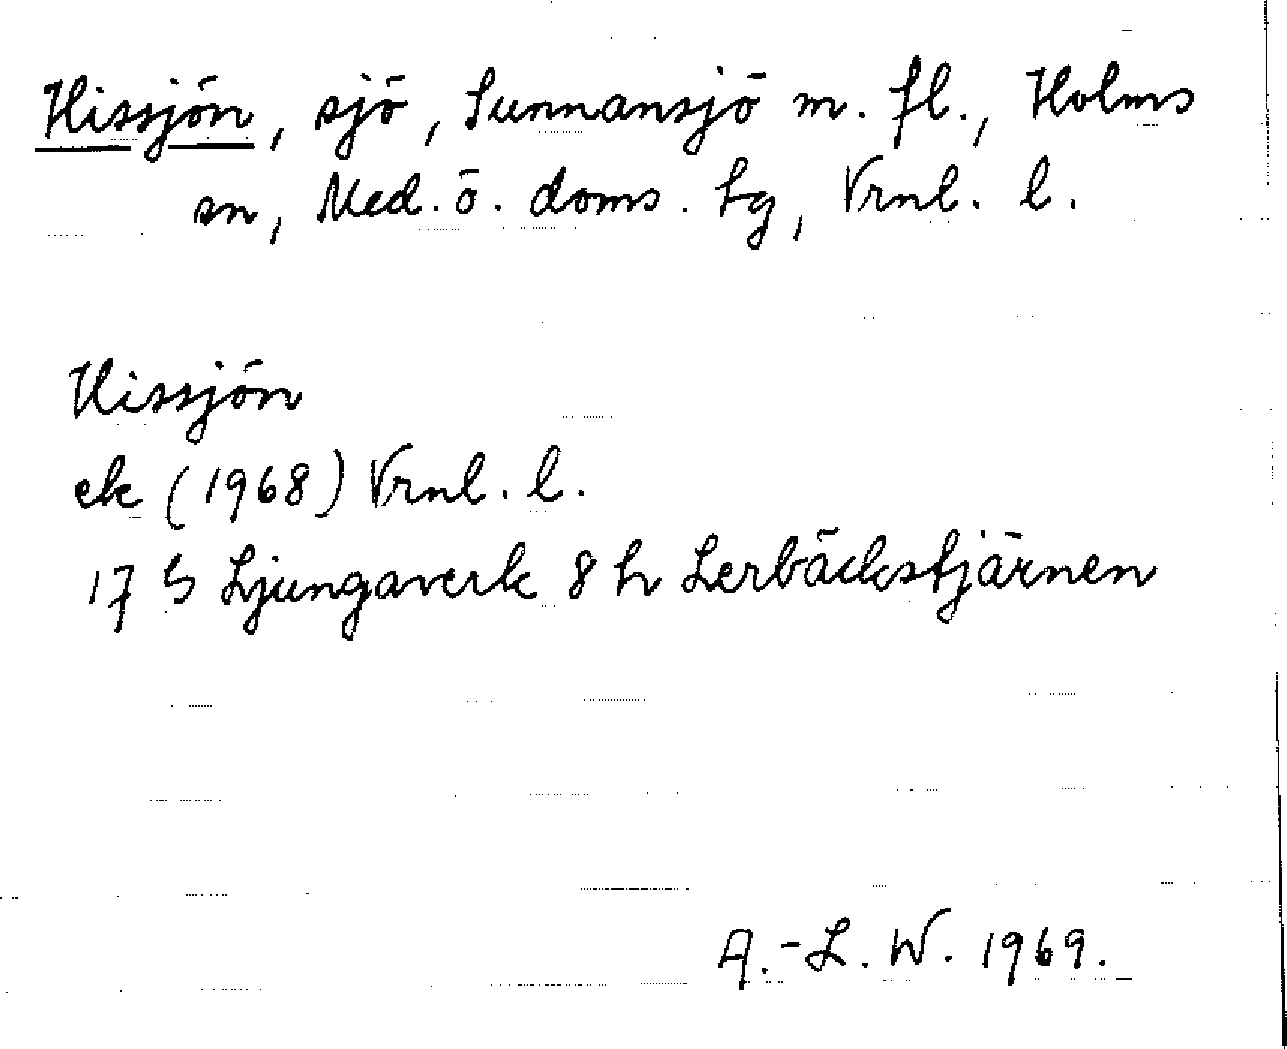 Hissjön, sjö, Sunnansjö m. fl., Holms
sn, Med. ö. doms. tg, Vrnl. l.
Hissjön
ek (1968) Vrnl. l.
17 G Ljungaverk 8 h Lerbäckstjärnen
A.-L. W. 1969.